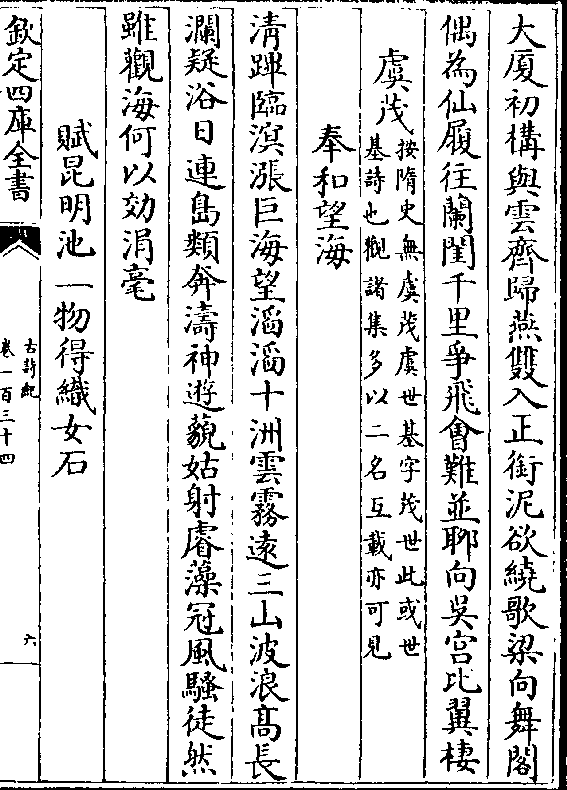 大厦初構與雲齊歸燕雙入正銜泥欲繞歌梁向舞閣
偶為仙履往蘭閨千里爭飛會難並聊向吳宮比翼棲
虞茂按隋史無虞茂虞世基字茂世此或世
基詩也觀諸集多以二名互載亦可見
奉和望海
清蹕臨溟漲巨海望滔滔十洲雲霧遠三山波浪高長
瀾疑浴日連島類奔濤神遊藐姑射睿藻冠風騷徒然
雖觀海何以効涓毫
賦昆明池一物得織女石
欽定四庫全書
古詩紀
卷一百三十四
六